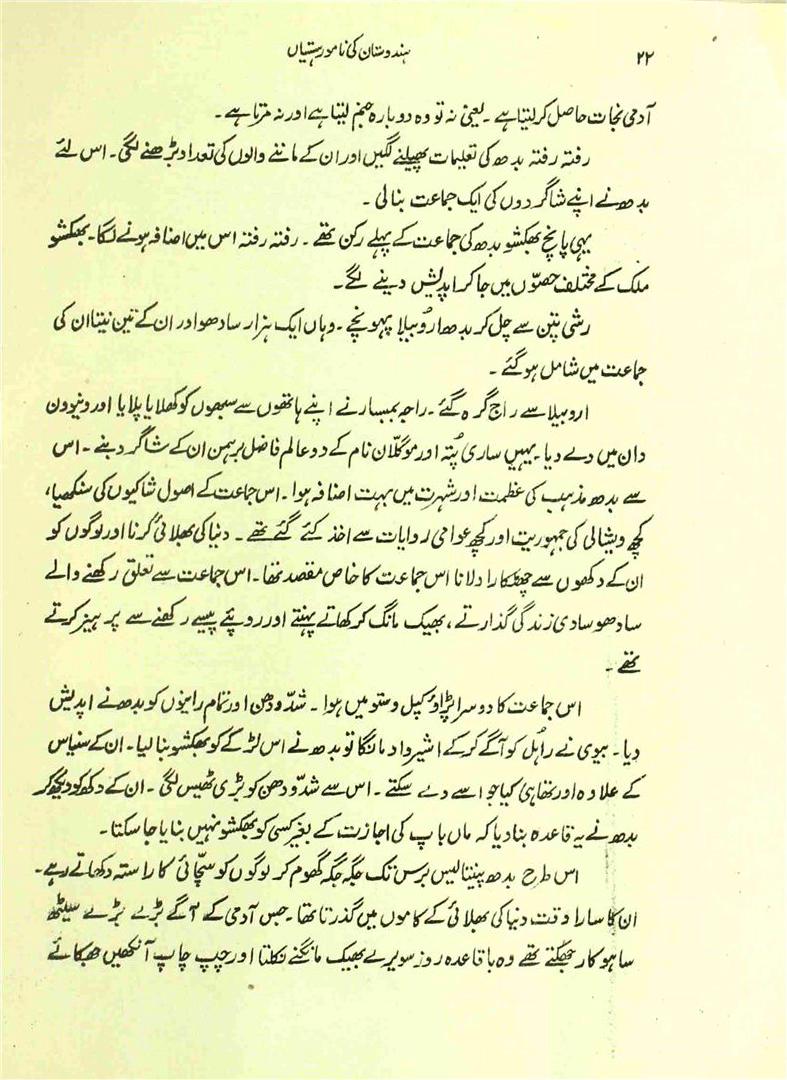 ۲۲ ہندوستان کی نامور ہستیاں
آدمی نجات حاصل کر لیتا ہے ۔ یعنی نہ تو وہ دوبارہ جنم لیتا ہے اور نہ مرتا ہے ۔
رفتہ رفتہ بدھ کی تعلیمات پھیلنے لگیں اور ان کے ماننے والوں کی تعداد بڑھنے لگی ۔ اس لئے
بدھ نے اپنے شاگردوں کی ایک جماعت بنالی ۔
یہی پانچ بھکشو بدھ کی جماعت کے پہلے رکن تھے ۔ رفتہ رفتہ اس میں اضافہ ہونے لگا ۔ بھکشو
ملک کے مختلف حصّوں میں جا کر اپدیش دینے لگے ۔
رشی پتن سے چل کر بدھ اروبیلا پہونچے ۔ وہاں ایک ہزار سادھو اور ان کے تین نیتا ان کی
جماعت میں شامل ہو گئے ۔
اروبیلا سے راج گرہ گئے ۔ راجہ بمبسار نے اپنے ہاتھوں سے سبھوں کو کھلایا پلایا اور ونیوون
دان میں دے دیا ۔ یہیں ساری پُتہ اور موگلّان نام کے دو عالم فاضل برہمن ان کے شاگرد بنے ۔ اس
سے بدھ مذہب کی عظمت اور شہرت میں بہت اضافہ ہوا ۔ اس جماعت کے اصول شاکیوں کی سنکھیا،
کچھ ویشالی کی جمہوریت اور کچھ عوامی روایات سے اخذ کئے گئے تھے ۔ دنیا کی بھلائی کرنا اور لوگوں کو
ان کے دکھوں سے چھٹکارا دلانا اس جماعت کا خاص مقصد تھا ۔ اس جماعت سے تعلق رکھنے والے
سادھو سادی زندگی گذارتے ، بھیک مانگ کر کھاتے پہنتے اور روپئے پیسے رکھنے سے پرہیز کرتے
تھے ۔
اس جماعت کا دوسرا پڑاؤ کپل وستو میں ہوا ۔ شدّودھن اور تمام رانیوں کو بدھ نے اپدیش
دیا ۔ بیوی نے راہُل کو آگے کر کے اشیرواد مانگا تو بدھ نے اس لڑکے کو بھکشو بنا لیا ۔ ان کے سنیاس
کے علاوہ اور تھا ہی کیا جو اسے دے سکتے ۔ اس سے شدّودھن کو بڑی ٹھیس لگی ۔ ان کے دکھ کو دیکھ کر
بدھ نے یہ قاعدہ بنا دیا کہ ماں باپ کی اجازت کے بغیر کسی کو بھکشو نہیں بنایا جا سکتا ۔
اس طرح بدھ پینتالیس برس تک جگہ جگہ گھوم کر لوگوں کو سچّائی کا راستہ دکھاتے رہے ۔
ان کا سارا وقت دنیا کی بھلائی کے کاموں میں گذرتا تھا ۔ جس آدمی کے آگے بڑے بڑے سیٹھ
ساہوکار جھکتے تھے وہ باقاعدہ روز سویرے بھیک مانگنے نکلتا اور چپ چاپ آنکھیں جھکائے